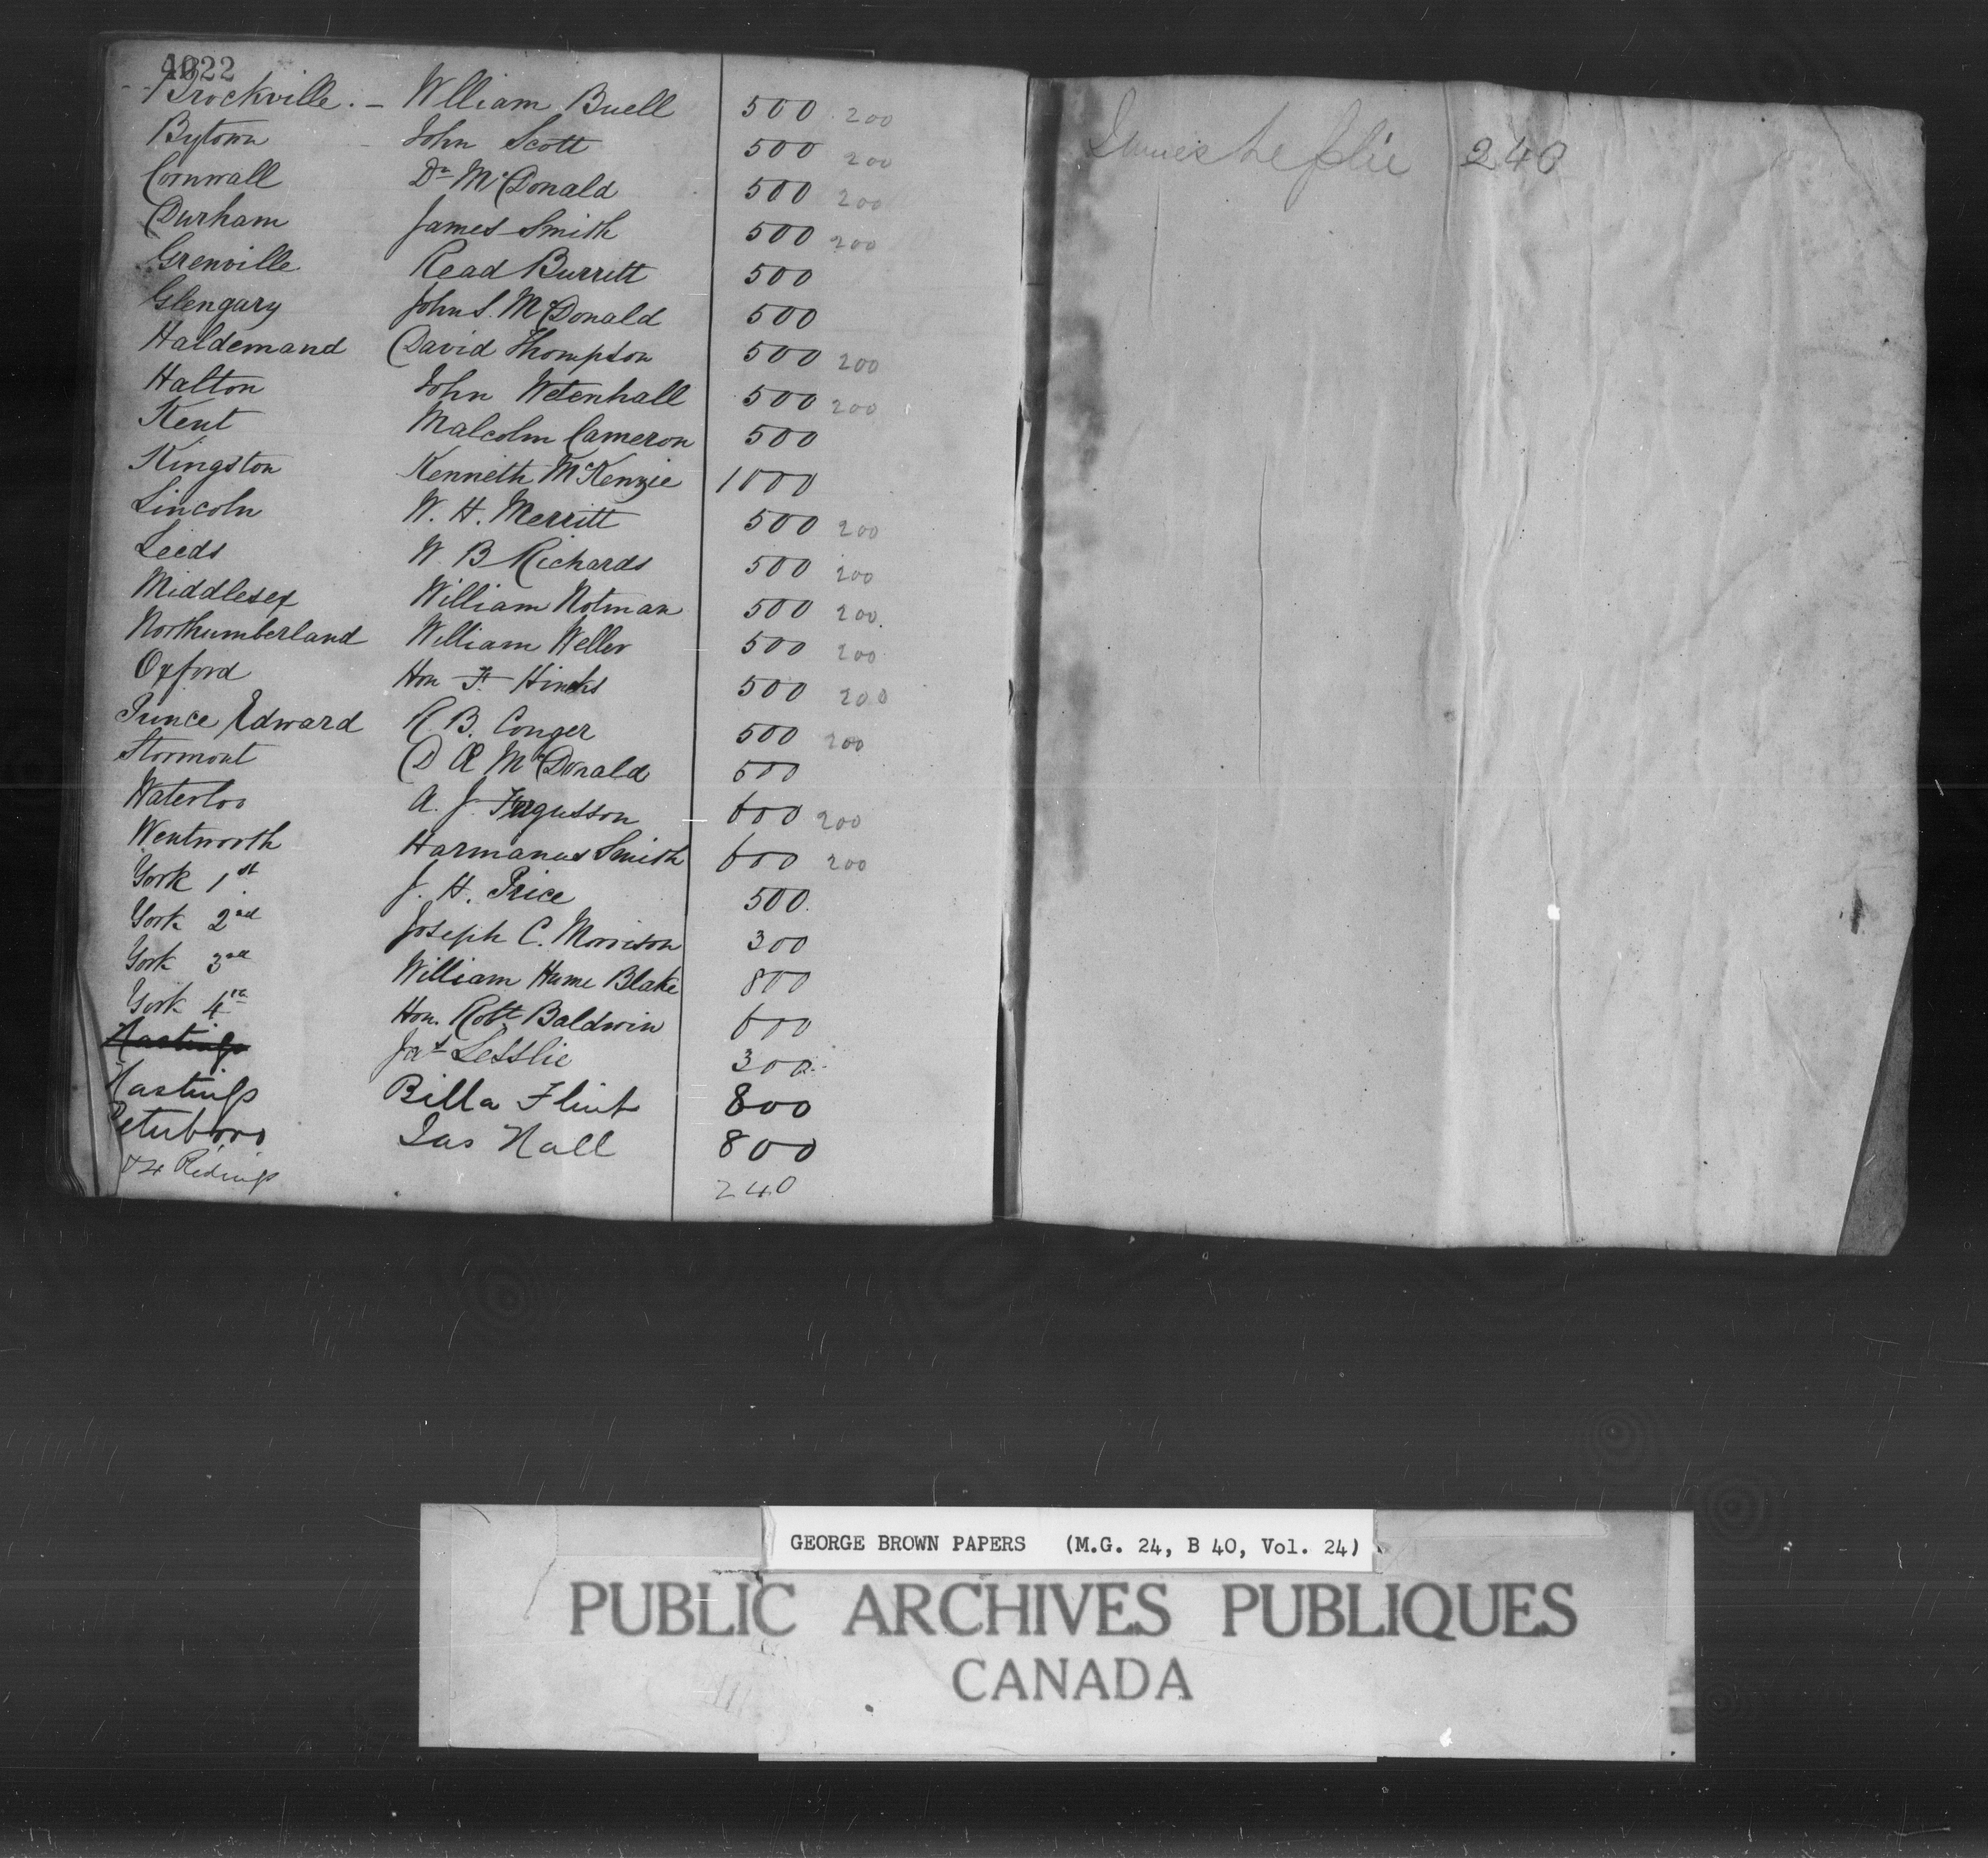 4022
Brockville. — Wlliam Buell 500 200
Bytown John Scott 500 200
Cornwall Dr McDonald 500 200
Durham James Smith 500 200
Grenville Read Burritt 500
Glengary John S. McDonald 500
Haldemand David Thompson 500 200
Halton John Wetenhall 500 200
Kent Malcolm Cameron 500
Kingston Kenneth McKenzie 1000
Lincoln W. H. Merritt 500 200
Leeds W B Richards 500 200
Middlesex William Notman 500 200
Northumberland William Weller 500 200
Oxford Hon F. Hincks 500 200
Prince Edward R. B. Conger 500 200
Stormont D Æ McDonald 500
Waterloo A. J. Fergusson 600 200
Wentworth Harmanus Smith 600 200
York 1st J. H. Price 500
York 2nd Joseph C. Morrison 300
York 3rd William Hume Blake 800
York 4th Hon. Robt Baldwin 600
Hastings Jas Lesslie 300
Hastings Billa Flint 800
Peterboro Jas Hall 800
Ridings 240
James Leslie 240
GEORGE BROWN PAPERS (M.G. 24, B 40, Vol. 24)
PUBLIC ARCHIVES PUBLIQUES
CANADA